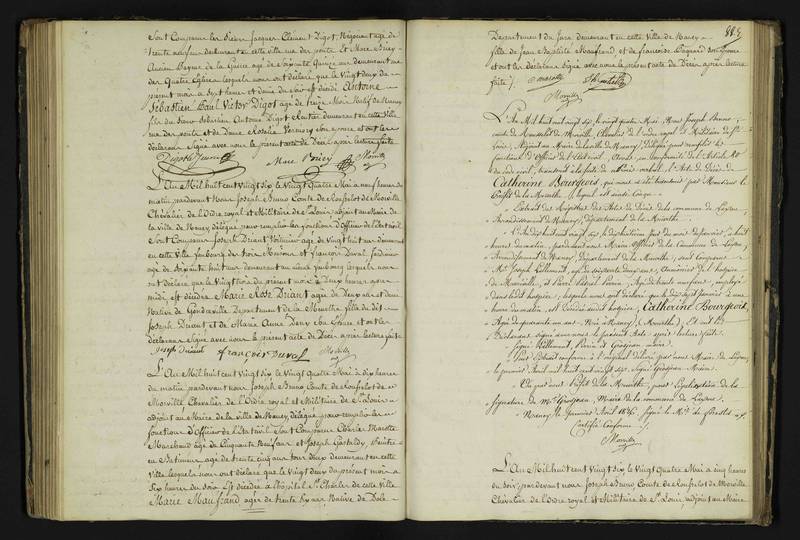 Sont Comparus les Sieurs Jacques Clément Digot, Négociant agé de
trente neuf ans demeurant en cette ville rue des ponts Et Marc Briey
Ancien Payeur de la Guerre agé de Soixante Quinze ans demeurant rue
des Quatre Eglises lesquels nous ont déclaré que le Vingt deux du
présent mois à Sept heures et demie du soir est décédé Antoine
Sébastien Paul Victor Digot agé de treize Mois Natif de Nancy
fils du Sieur Sébastien Antoine Digot Rentier demeurant en cette Ville
rue des ponts et de Dame Rosalie son Epouse et ont les
déclarans Signé avec nous le présent acte de Décès après lecture faite
L'An Mil huit cent Vingt Six le Vingt Quatre Mai à neuf heures du
matin pardevant nous Joseph Bruno Comte de Rousselot de Morville
Chevalier de l'Ordre royal et Militaire de St Louis adjoint au Maire de
la Ville de Nancy délégué pour remplir les fonctions d'Officier de l'Etat Civil
Sont Comparus Joseph Driant Voiturier agé de Vingt huit ans demeurant
en cette Ville faubourg des trois Maisons et François Duval
agé de Soixante huit ans demeurant au même faubourg lesquels nous
ont déclaré que le Vingt trois du présent mois à Deux heures après
midi, est décédée Marie Rose Driant agée de Deux ans et demi
Native de Gondreville Département de la Meurthe fille du dit
Joseph Driant et de Marie Anne son Epouse et ont les
déclarans Signé avec nous le présent acte de Décès après lecture faite
Joseph Driant François Duval Morville
L'An Mil huit cent Vingt Six le Vingt Quatre Mai à dix heures
du matin pardevant nous Joseph Bruno Comte de Rousselot de
Morville Chevalier de l'Ordre royal et Militaire de St Louis
adjoint au Maire de la Ville de Nancy délégué pour remplir les
fonctions d'Officier de l'Etat Civil Sont Comparus Charles Marotte
Marchand agé de Cinquante Neuf ans et Joseph Peintre
en Batiment agé de trente cinq ans tous deux demeurant en cette
Ville lesquels nous ont déclaré que le Vingt deux du présent mois à
Six heures du Soir Est décédée à l'hôpital St Charles de cette Ville
Marie Maufrand agée de trente Six ans Native de Dole
885
Département du Jura demeurant en cette Ville de Nancy
fille de Jean Baptiste Maufrand et de françoise son Epouse
et ont les déclarans Signé avec nous le présent acte de Décès après lecture
faite Marotte
Morville
L'An Mil huit cent vingt six, le vingt quatre Mai, Nous Joseph Bruno
comte de Rousselot de Morville, Chevalier de l'ordre royal et Militaire de St
Louis, Adjoint au Maire de la ville de Nancy, délégué pour remplir les
fonctions d'Officier de l'Etat civil, Avons, en conformité de l'Article 80
du code civil, transcrit à la suite l'Acte de Décès de
Catherine Bourgeois, qui nous a été transmis par Monsieur le
Préfet de la Meurthe, lequel est ainsi Conçu :
Extrait des Registres des Actes de Décès de la commune de Laxou,
Arrondissement de Nancy, Département de la Meurthe.
L'An dix huit cent vingt six, le dix huitième jour du mois de janvier, à huit
heures du matin, pardevant nous Maire Officier de la Commune de Laxou,
Arrondissement de Nancy, Département de la Meurthe, sont Comparus
Mr Joseph Killement, agé de soixante deux ans, de l'hospice
de Maréville, et Pierre agé de trente neuf ans, employé
dans ledit hospice, lesquels nous ont déclaré que le dix sept janvier à une
heure du matin, est décédée audit hospice, Catherine Bourgeois,
Agée de quarante un ans, Née à Nancy (Meurthe), Et ont les
Déclarans signé avec nous le présent Acte après lecture faite.
Signé Killement, Pierre et Grosjean maire.
Pour Extrait conforme à l'original délivré par nous Maire de Laxou,
le premier Avril mil huit cent vingt six, Signé Grosjean Maire.
Vu par nous Préfet de la Meurthe, pour Légalisation de la
Signature de Mr Grosjean, Maire de la commune de Laxou.
Nancy, le Avril 1826, signé le Mis de Foresta
Certifié Conforme
Morville
L'An Mil huit cent Vingt Six le Vingt Quatre Mai à cinq heures
du soir, pardevant nous Joseph Bruno Comte de Rousselot de Morville
Chevalier de l'Ordre royal et Militaire de St Louis, adjoint au Maire